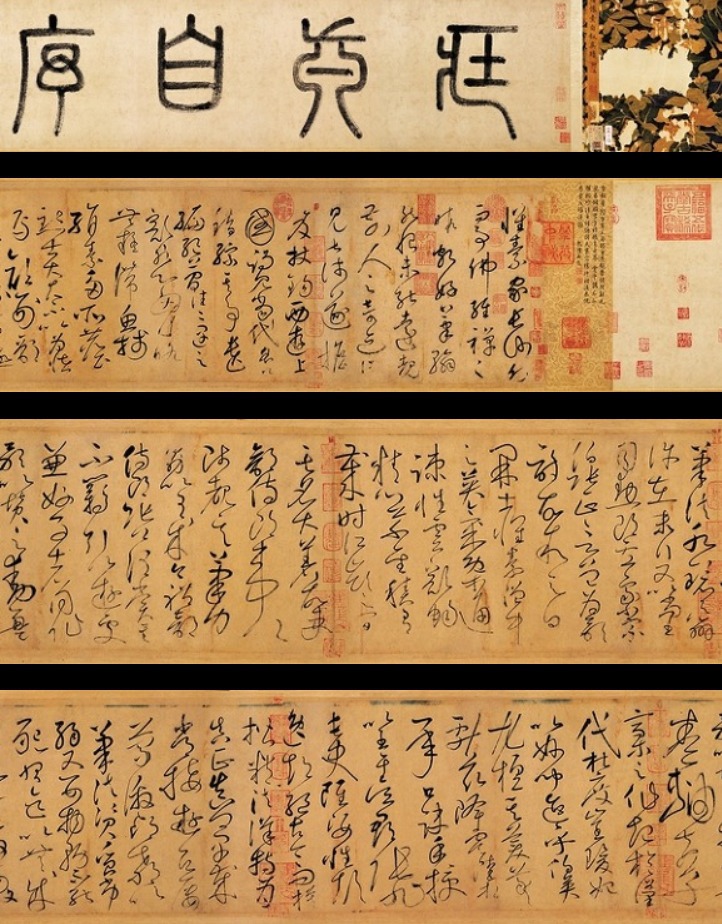 藏真自序
懷素家長沙幼而
事佛經禪之
暇頗好筆翰
然恨未能遠覩
前人之奇迹所
見甚淺遂擔
笈杖錫西遊上
國謁見當代名公
錯綜其事遺
編絕簡往往遇之
豁然心胸略
無疑滯魚牋
絹素多所塵點
士大夫不以為怪
焉顏刑部
筆法水鏡之辨
許在末行又以尚書
司勳郎盧象小宗
伯張正言曾為歌詩
故敘之曰
開士懷素僧中
之英氣概通
疎性靈豁暢
精心草聖積有
歲時江嶺之間
其名大著故吏
部侍郎韋公
陟覩其筆力
勗以有成今禮部
侍郎張公謂賞其
不羈引以遊處
兼好事者同作
歌以贊之動盈
卷軸夫草
稾之作起於漢
代杜度崔瑗始
以妙聞迨乎伯英
尤擅其美羲
獻茲降虞陸
相承口訣手授
以至于吳郡張旭
長史雖姿性顛
逸超絕古今而模
楷精法詳特為
真正真卿早歲
常接遊居屢
蒙激昂教以
筆法資質劣
弱又嬰物務不能
懇習迄以無成